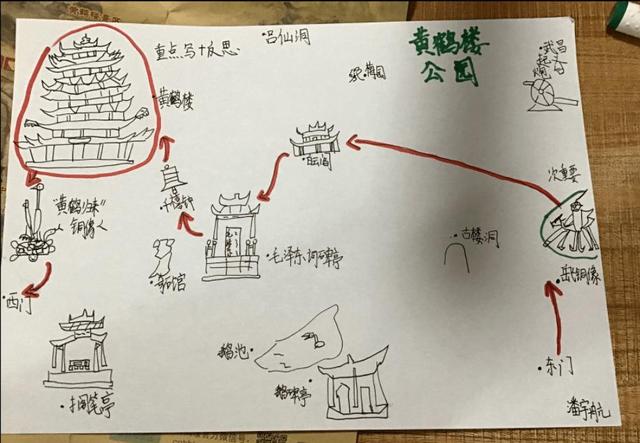 吕仙洞
黄鹤楼
公园
武昌
起义
重点写+反思
紫薇园
黄鹤楼
白云阁
次重要
千禧钟
"黄鹤归来"
铜像
古楼洞
毛泽东词碑亭
岳飞铜像
西门
鹅池
东门
鹅碑亭
搁笔亭
潘宇航